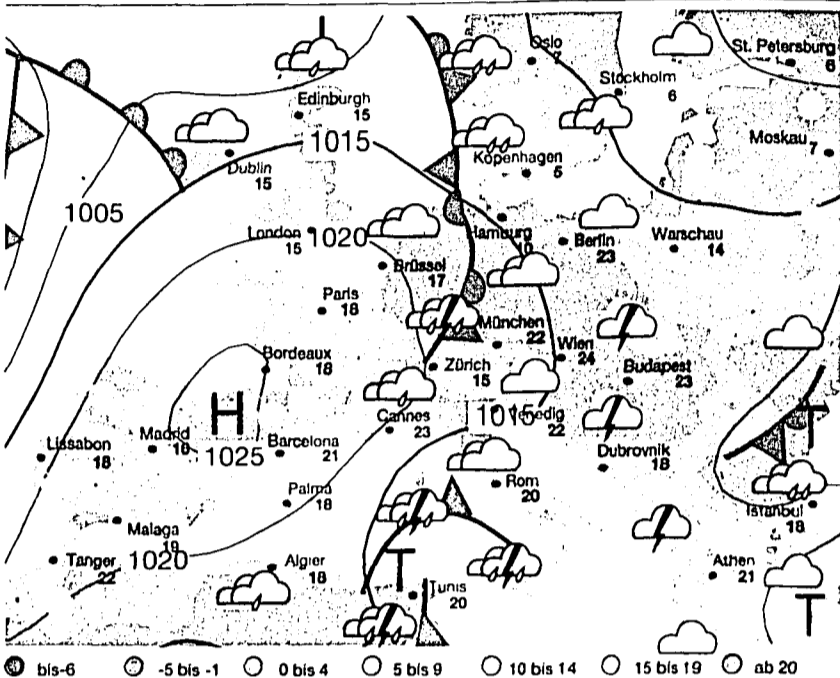 Oslo
7
St. Petersburg
6
Stockholm
6
Edinburgh
15
1015
Moskau 7
Dublin
15
Kopenhagen
5
1005
London
15
1020
Hamburg
10
Berlin
23
Warschau
14
Brüssel
17
Paris
18
München
22
Wien
24
Bordeaux
18
Zürich
15
Budapest
23
H
1015
22
Cannes
23
T
Lissabon
18
Madrid
Barcelona
21
1025
Dubrovnik
18
Rom
20
Palma
18
Istanbul
18
Malaga
Tanger
22
1020
Algier
18
T
Tunis
20
Athen
21
T
bis-6
-5 bis -1
0 bis 4
5 bis 9
10 bis 14
15 bis 19
ab 20